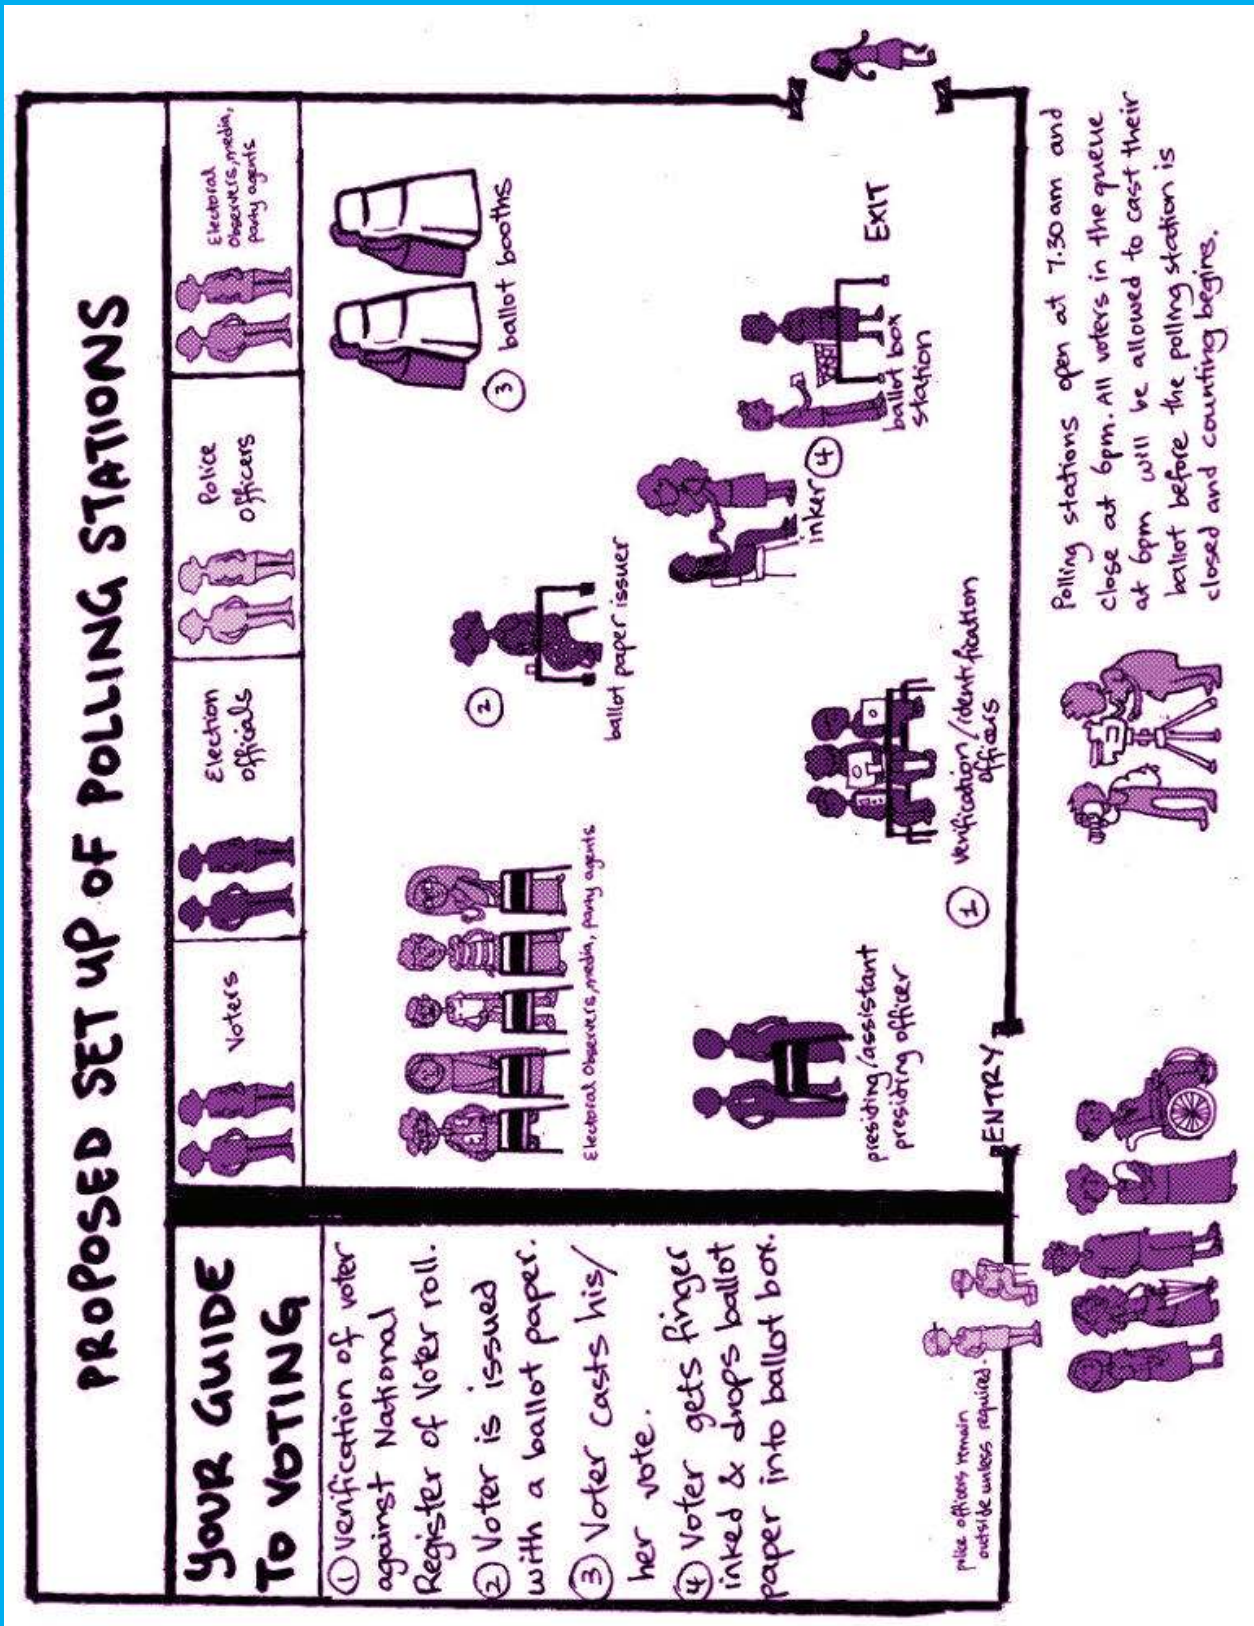 PROPOSED SET UP OF POLLING STATIONS
YOUR GUIDE
TO VOTING
① Verification of voter
against National
Register of Voter roll.
② Voter is issued
with a ballot paper.
③ Voter casts his/
her vote.
④ Voter gets finger
inked & drops ballot
paper into ballot box.
police officers remain
outside unless required.
Voters
Election
officials
Police
officers
Electoral
Observers, media,
party agents
Electoral Observers, media, party agents
presiding/assistant
presiding officer
ENTRY
① verification/identification
officers
②
ballot paper issuer
③ ballot booths
inker ④
ballot box
station
EXIT
Polling stations open at 7.30am and
close at 6pm. All voters in the queue
at 6pm will be allowed to cast their
ballot before the polling station is
closed and counting begins.